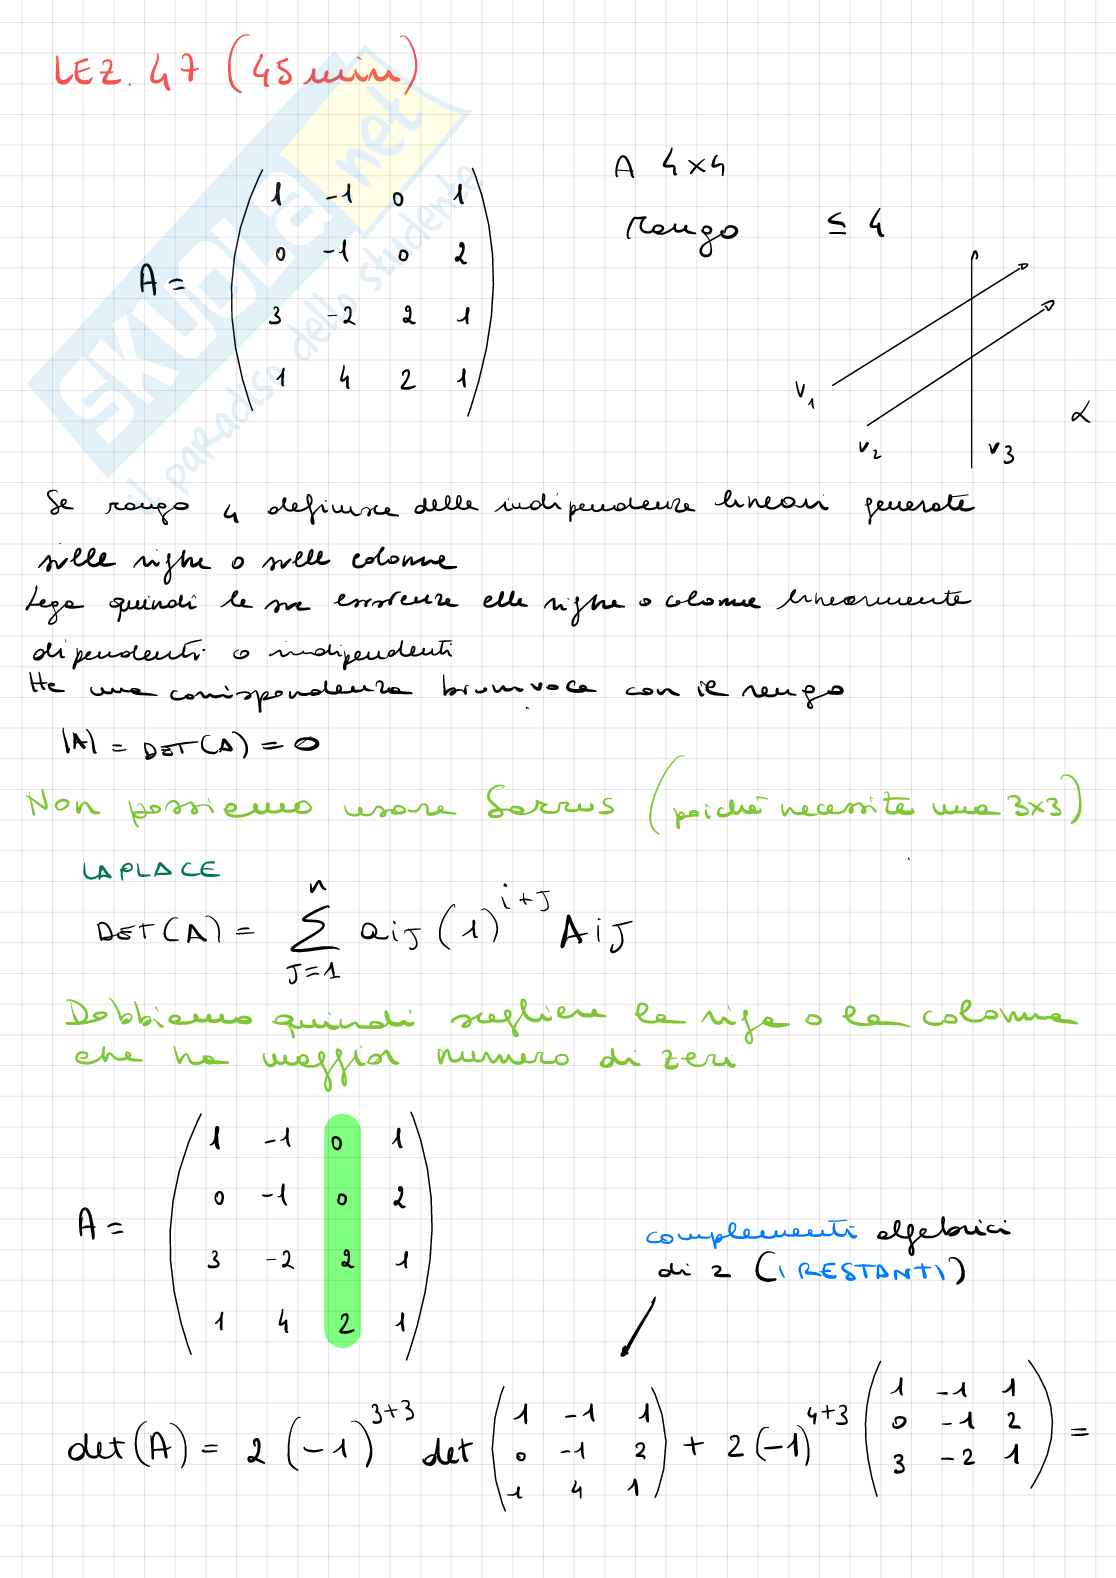 LEZ. 47 (45 min)
A 4x4
rango ≤ 4
A =
1 -1 0 1
0 -1 0 2
3 -2 2 1
1 4 2 1
V1
V2
V3
α
SKUOLA.net
il paradiso dello studente
Se rango 4 definisce delle indipendenze lineari generate
sulle righe o sulle colonne
Lega quindi la sua esistenza alle righe o colonne linearmente
dipendenti o indipendenti
Ha una corrispondenza biunivoca con il rango
|A| = DET(A) = 0
Non possiamo usare Sarrus (poiché necessita una 3x3)
LAPLACE
DET(A) = ∑ⁿ_{J=1} aiJ (1)^{i+J} AiJ
Dobbiamo quindi scegliere la riga o la colonna
che ha maggior numero di zeri
A =
1 -1 0 1
0 -1 0 2
3 -2 2 1
1 4 2 1
complementi algebrici
di 2 (I RESTANTI)
det(A) = 2 (-1)^{3+3} det (1 -1 1
0 -1 2
1 4 1) + 2(-1)^{4+3} (1 -1 1
0 -1 2
3 -2 1) =